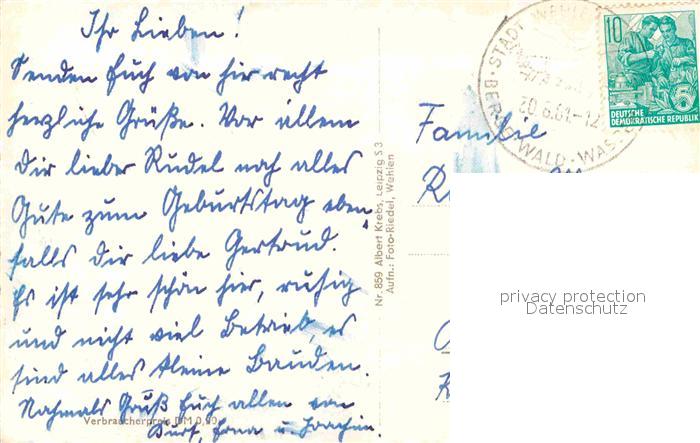 Ihr Lieben!
Senden Euch von hier recht
herzliche Grüße. Vor allem
Dir lieber Rudel noch alles
Gute zum Geburtstag eben-
falls Dir liebe Gertrud.
Es ist sehr schön hier, ruhig
und nicht viel Betrieb, es
sind alles kleine Bauden.
Nochmals Gruß Euch allen von
Kurt, Erna u. Joachim.
Verbraucherpreis DM 0,20
Nr. 859 Albert Krebs, Leipzig S 3
Aufn.: Foto-Riedel, Wehlen
Familie
STADT WEHLEN
20.6.61.-12
BERGE · WALD · WASSER
10
DEUTSCHE
DEMOKRATISCHE REPUBLIK
5
privacy protection
Datenschutz